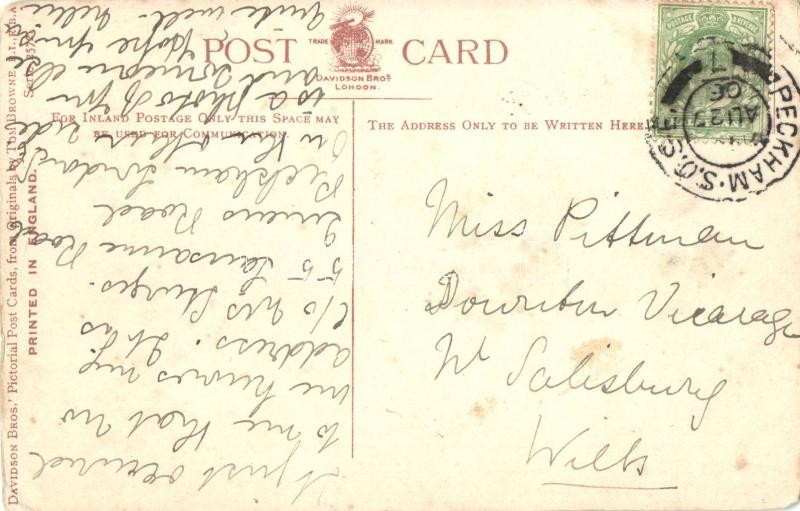 POST CARD
TRADE MARK
DAVIDSON BROS
LONDON.
FOR INLAND POSTAGE ONLY THIS SPACE MAY
BE USED FOR COMMUNICATION.
THE ADDRESS ONLY TO BE WRITTEN HERE
DAVIDSON BROS.' Pictorial Post Cards, from Originals by TOM BROWNE, R.I., R.B.A
PRINTED IN ENGLAND.
POSTAGE
PECKHAM S.O.
AU 29
Miss Pittman
Downton Vicarage
Nr Salisbury
Wilts
It just occurred
to me that no
one knows my
address. It is
c/o Mrs Sturges.
55 Lausanne Road
Queens Road
Peckham London
On the other side
to a photo of you
and someone else
Hope you is
quite well.